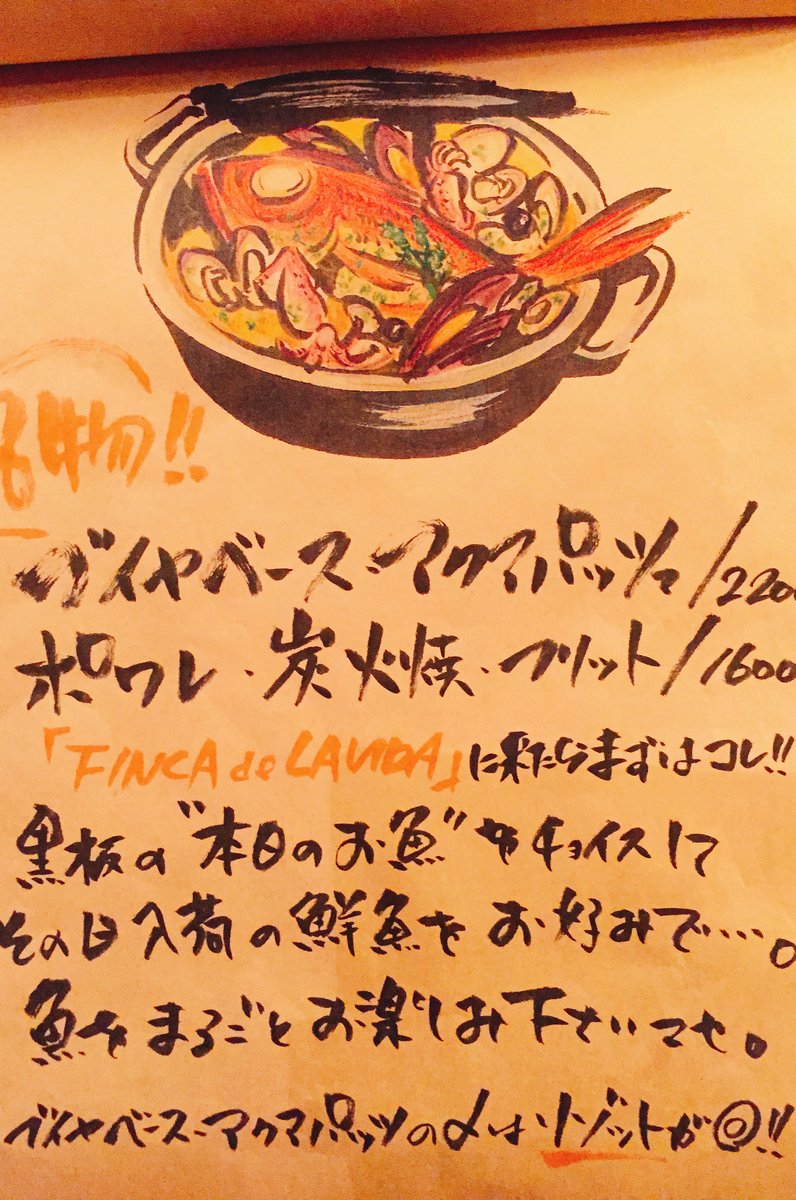 名物!!
ブイヤベース・アクアパッツァ/2200
ポワレ・炭火焼・フリット/1600
「FINCA de LA VIDA」に来たらまずはコレ!!
黒板の"本日のお魚"をチョイスして
その日入荷の鮮魚をお好みで……。
魚をまるごとお楽しみ下さいマセ。
ブイヤベース・アクアパッツァの〆はリゾットが◎!!